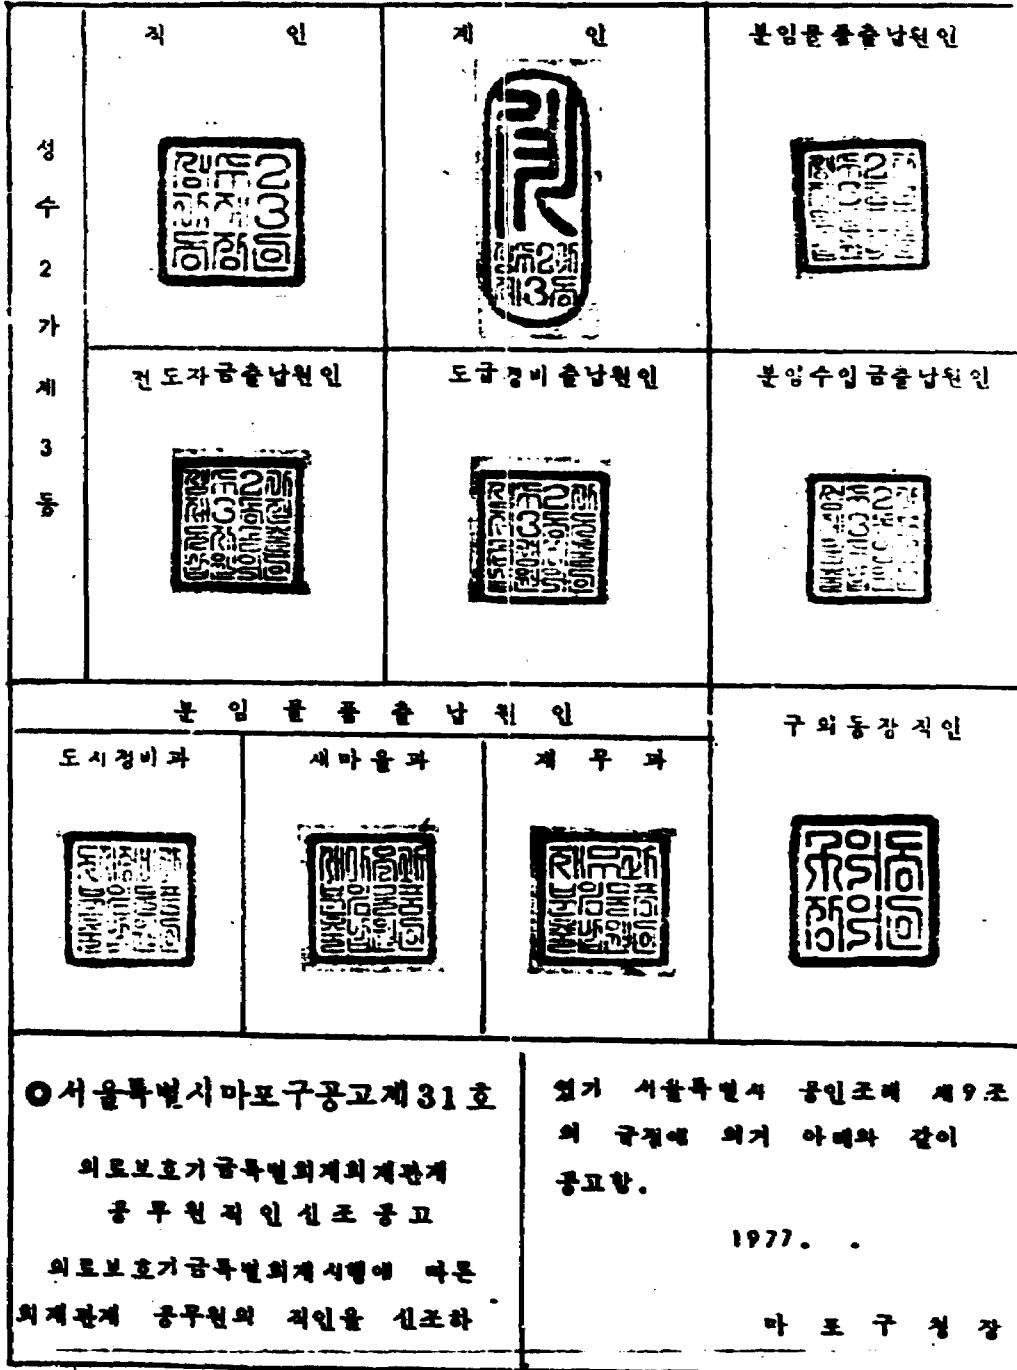 직 인
계 인
분임물품출납원인
성수2가제3동
전도자금출납원인
도급경비출납원인
분임수입금출납원인
분임물품출납원인
구의동장직인
도시정비과
새마을과
재무과
○서울특별시마포구공고제31호
의료보호기금특별회계회계관계
공무원직인신조공고
의료보호기금특별회계시행에 따른
회계관계 공무원의 직인을 신조하
였기 서울특별시 공인조례 제9조
의 규정에 의거 아래와 같이
공고함.
1977. .
마포구청장